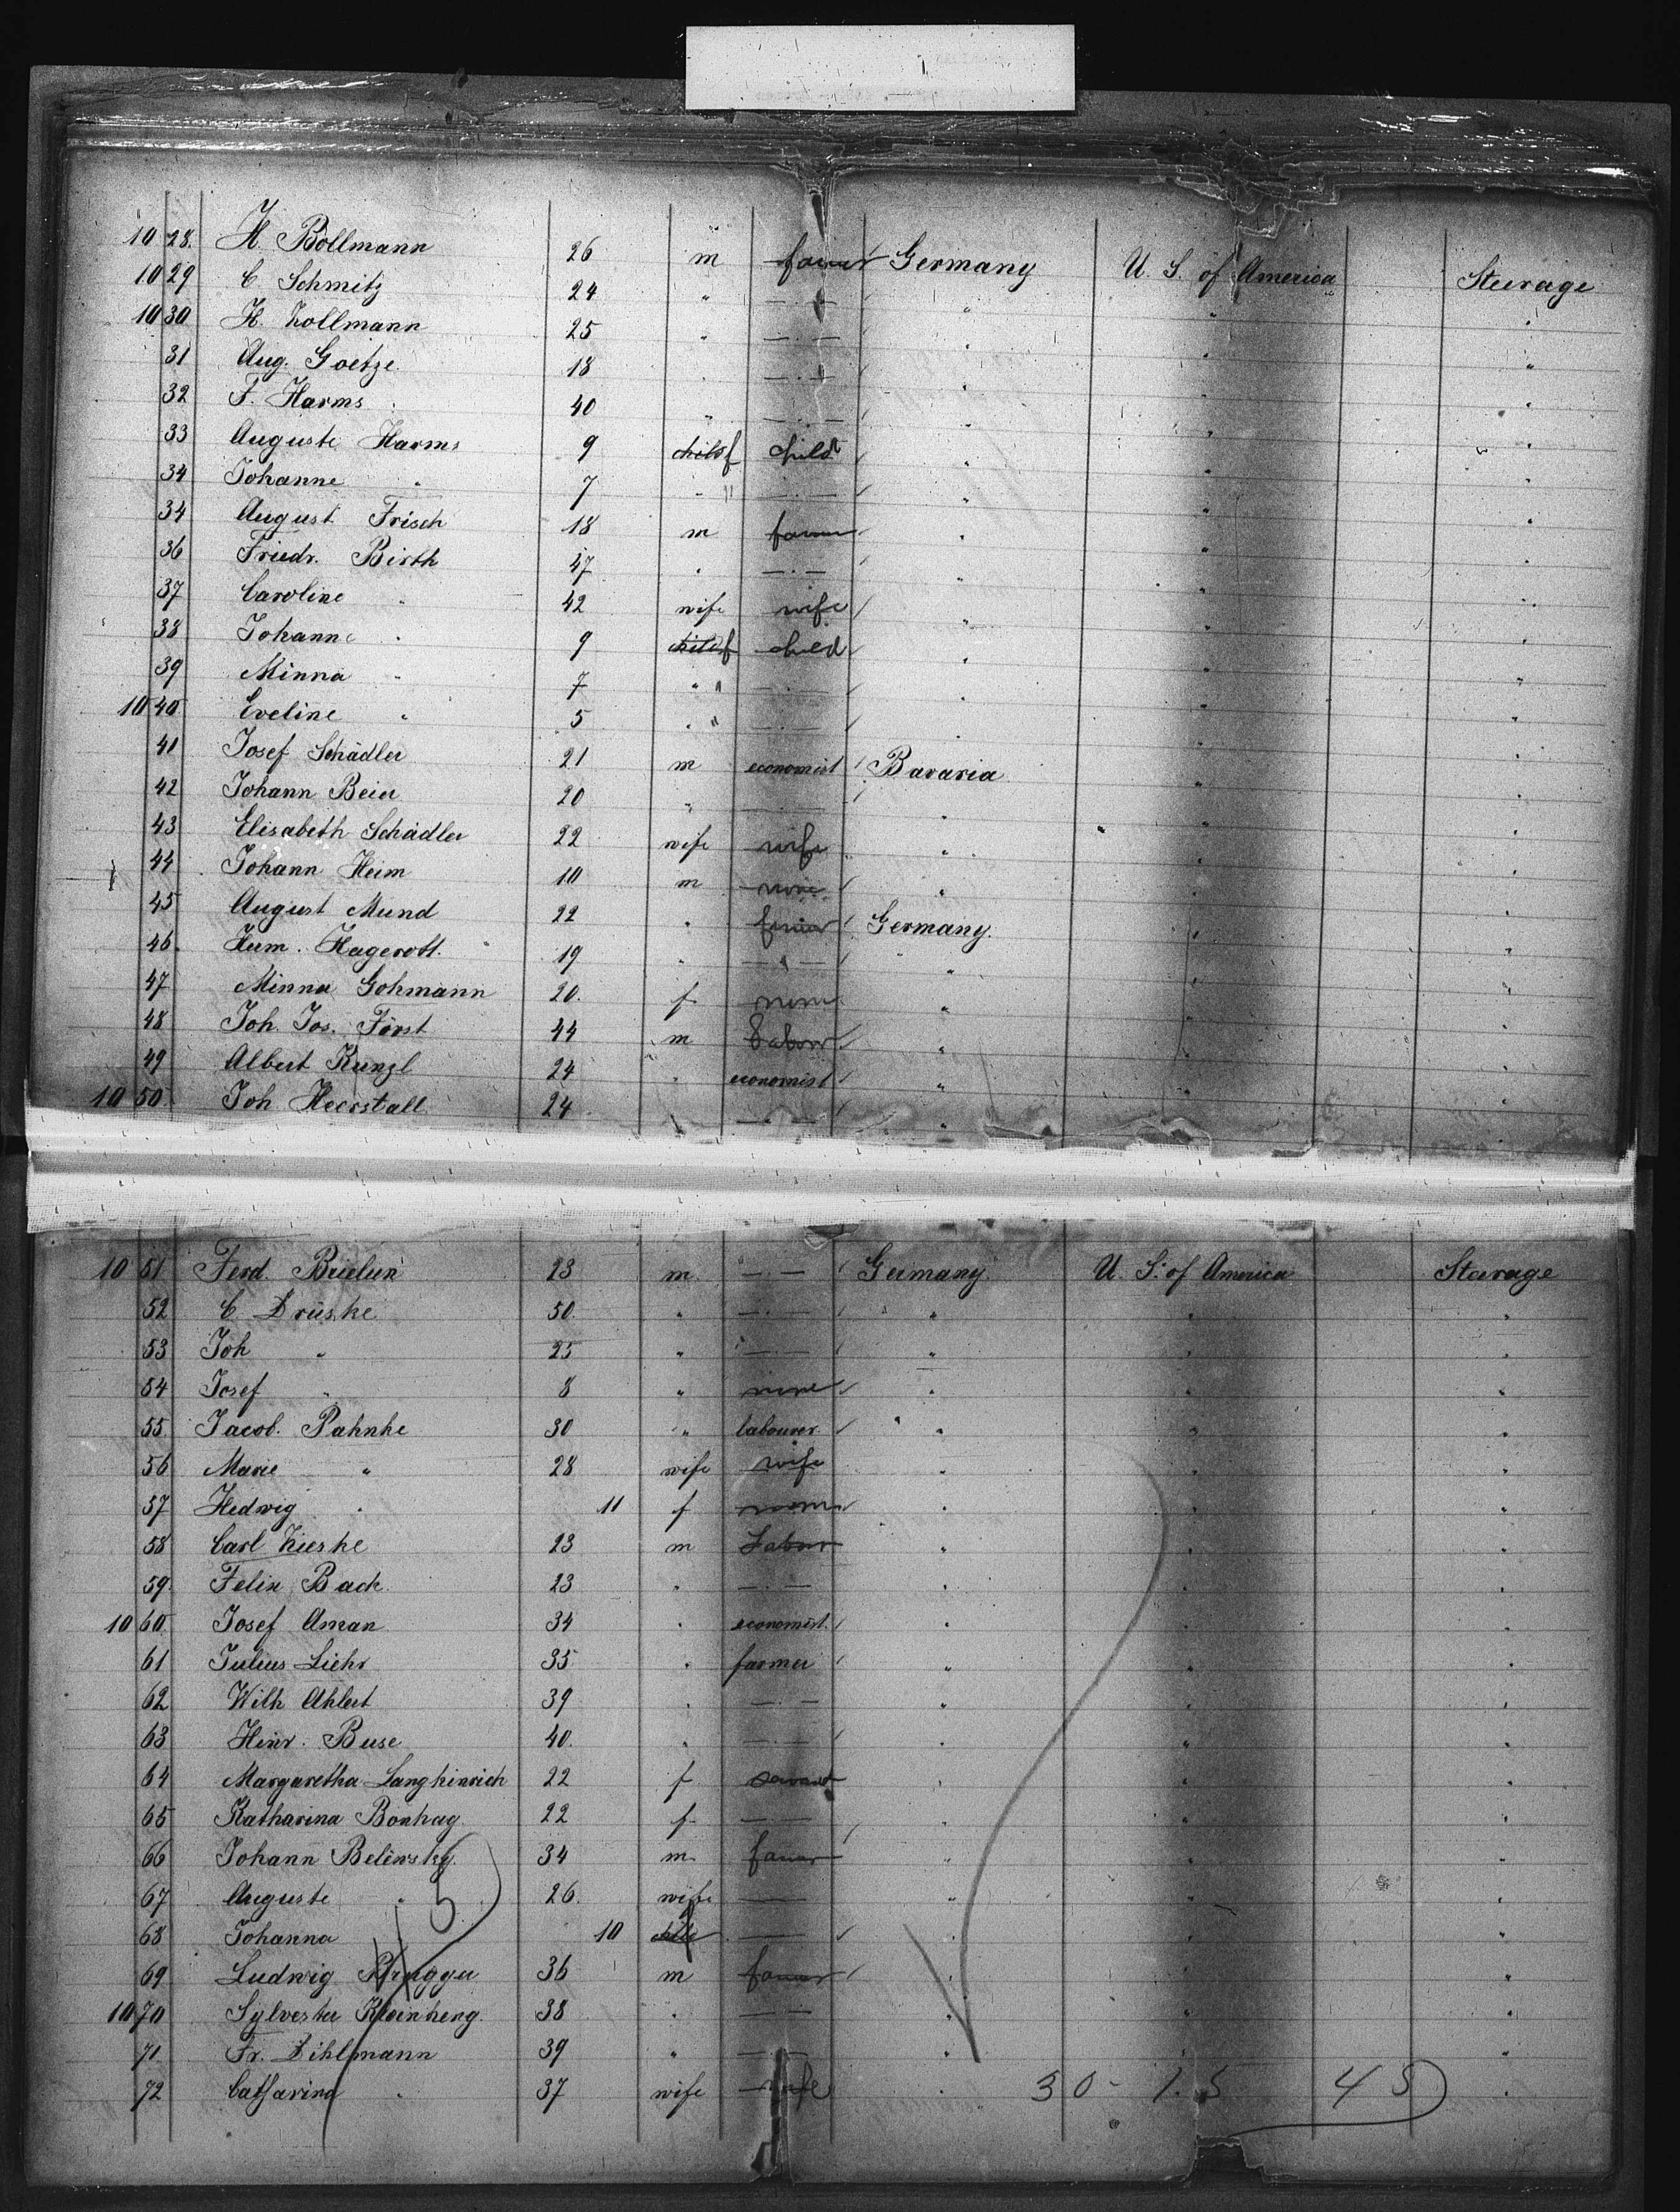 10 28. H. Böllmann 26 m farmer Germany U. S. of America Steerage
10 29 C Schmitz 24 " — . — " " "
10 30 H. Kollmann 25 " — . — " " "
31 Aug. Goetze. 18 " — . — " " "
32 F. Harms 40 " — . — " " "
33 Auguste Harms 9 child f child " " "
34 Johanne " 7 " " — . — " " "
34 August Frisch 18 m farmer " " "
36 Friedr. Birth 47 " — . — " " "
37 Caroline " 42 wife wife " " "
38 Johanne " 9 child f child " " "
39 Minna " 7 " " — . — " " "
10 40 Eveline " 5 " " — . — " " "
41 Josef Schädler 21 m economist Bavaria " "
42 Johann Beier 20 " — . — " " "
43 Elisabeth Schädler 22 wife wife " " "
44 Johann Heim 10 m none " " "
45 August Mund 22 " farmer Germany. " "
46. Herm. Hagerott. 19 " — " — " " "
47 Minna Gohmann 20. f none " " "
48 Joh. Jos. Först 44 m Labour " " "
49 Albert Kunzl 24 " economist " " "
10 50. Joh Heerstall 24 — . — "
10 51 Ferd. 23 m. — . — Germany. U. S. of America Steerage
52 C Drüske 50. " — . — " " "
53 Joh " 25 " — . — " " "
54 Josef " 8 " none " " "
55. Jacob. Pahnke 30 " labourer " " "
56 Marie " 28 wife wife " " "
57 Hedwig " 11 f none " " "
58 Carl Kieske 23 m Labour " " "
59. Felix Back. 23 " — . — " " "
10 60. Josef Aman 34 " economist. " " "
61 Julius Liehr 35 " farmer " " "
62 Wilh Ahlert 39 " — . — " " "
63 Hinr. Buse 40. " — . — " " "
64 Margaretha Langhinrich 22 f servant " " "
65 Katharina Bonhag 22 f. — . — " " "
66 Johann Belewsky. 34 m. farmer " " "
67 Auguste " 26. wife — " " "
68 Johanna 10 child f — " " "
69 Ludwig 36 m farmer " " "
10 70 Sylvester 38 " — . — " " "
71. Fr. Dihlmann 39 " — . — " " "
72 Catharina " 37 wife wife " 30 - 1. 5 45 "